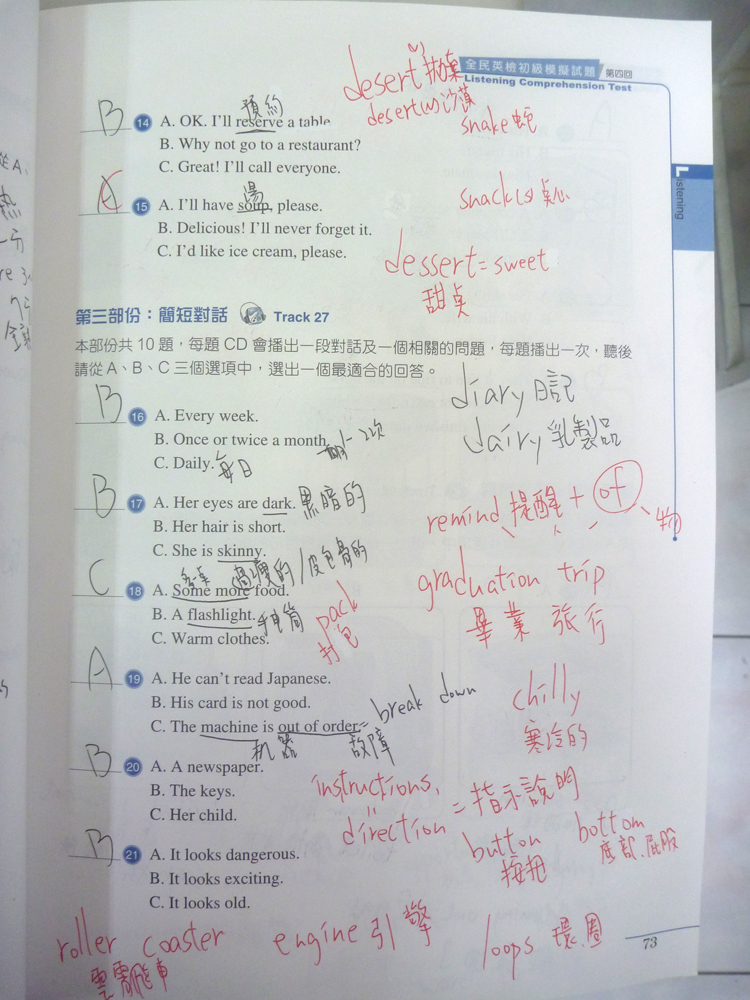 desert (v) 拋棄
全民英檢初級模擬試題 第四回
Listening Comprehension Test
desert (n) 沙漠
snake 蛇
B 預約
14 A. OK. I'll reserve a table.
B. Why not go to a restaurant?
C. Great! I'll call everyone.
Listening
A 湯
15 A. I'll have soup, please.
snack (s) 點心
B. Delicious! I'll never forget it.
C. I'd like ice cream, please.
dessert = sweet
甜桌
第三部份：簡短對話 Track 27
本部份共 10 題，每題 CD 會播出一段對話及一個相關的問題，每題播出一次，聽後
請從 A、B、C 三個選項中，選出一個最適合的回答。
diary 日記
B
16 A. Every week.
B. Once or twice a month.
dairy 乳製品
C. Daily. 每日
B
17 A. Her eyes are dark. 黑暗的
B. Her hair is short.
remind 提醒 + of 物
C. She is skinny.
過瘦的/皮包骨的
C
18 A. Some more food.
graduation trip
B. A flashlight. 手電筒
pack
打包
畢業 旅行
C. Warm clothes.
A
19 A. He can't read Japanese.
B. His card is not good.
chilly
C. The machine is out of order. = break down
机器 故障
寒冷的
B
20 A. A newspaper.
B. The keys.
instructions,
C. Her child.
direction = 指示說明
button
按扭
bottom
底部.屁股
B
21 A. It looks dangerous.
B. It looks exciting.
C. It looks old.
roller coaster
雲霄飛車
engine 引擎
loops 環.圈
73